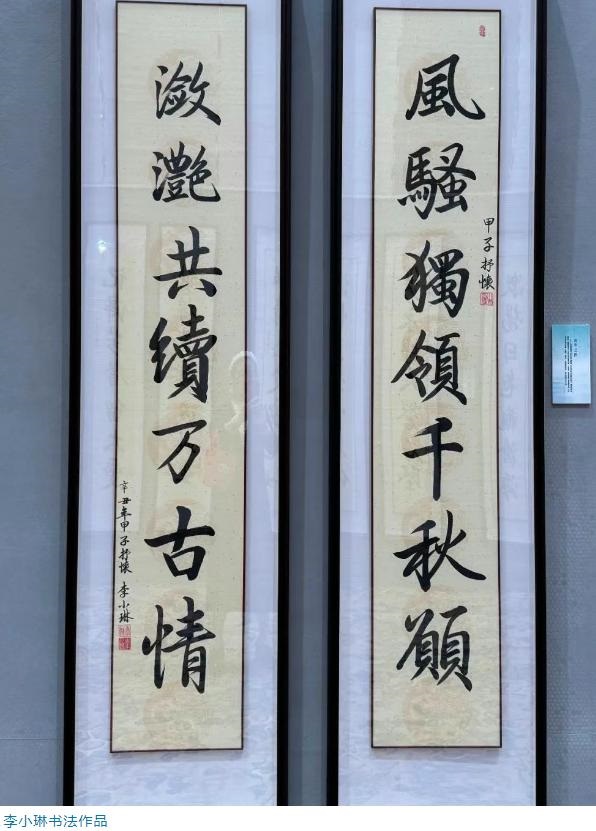 風騷獨領千秋願
甲子抒懷
瀲灩共續万古情
辛丑年甲子抒懷 李小琳
李小琳书法作品